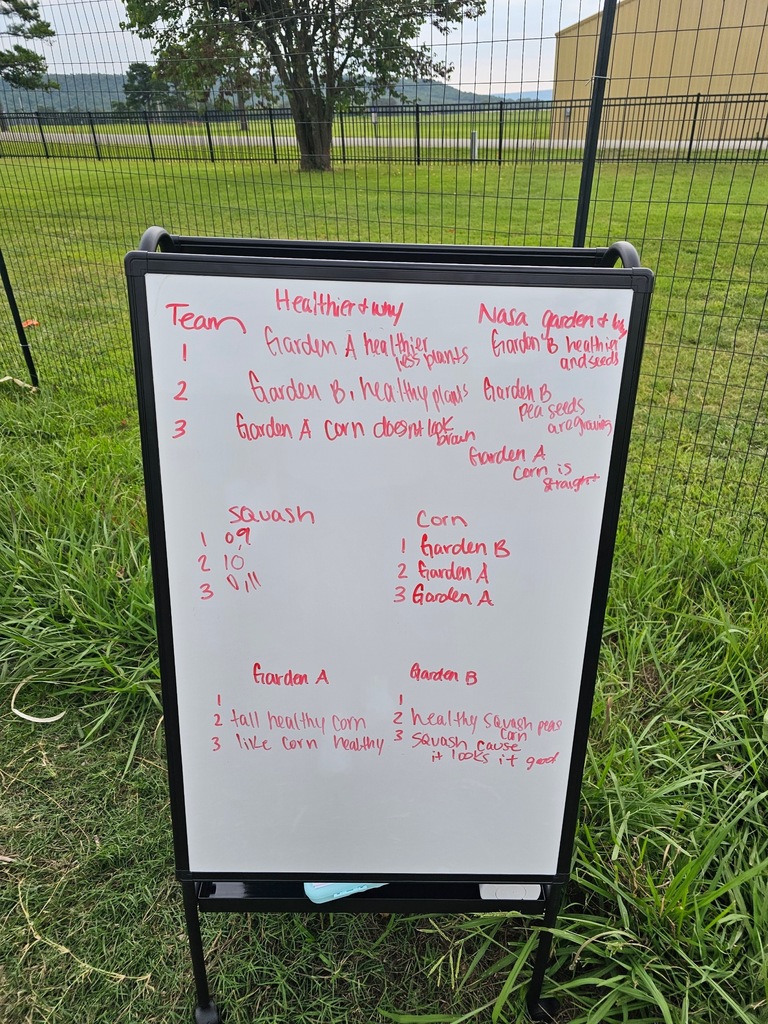 Team Healthier + why Nasa garden + why
1 Garden A healthier less plants Garden B healthier and seeds
2 Garden B, healthy plants Garden B pea seeds are growing
3 Garden A corn doesnt look brown Garden A corn is straight
Squash Corn
1 0,9 1 Garden B
2 10 2 Garden A
3 0,11 3 Garden A
Garden A Garden B
1 1
2 tall healthy corn 2 healthy squash peas corn
3 like corn healthy 3 squash cause it looks it good